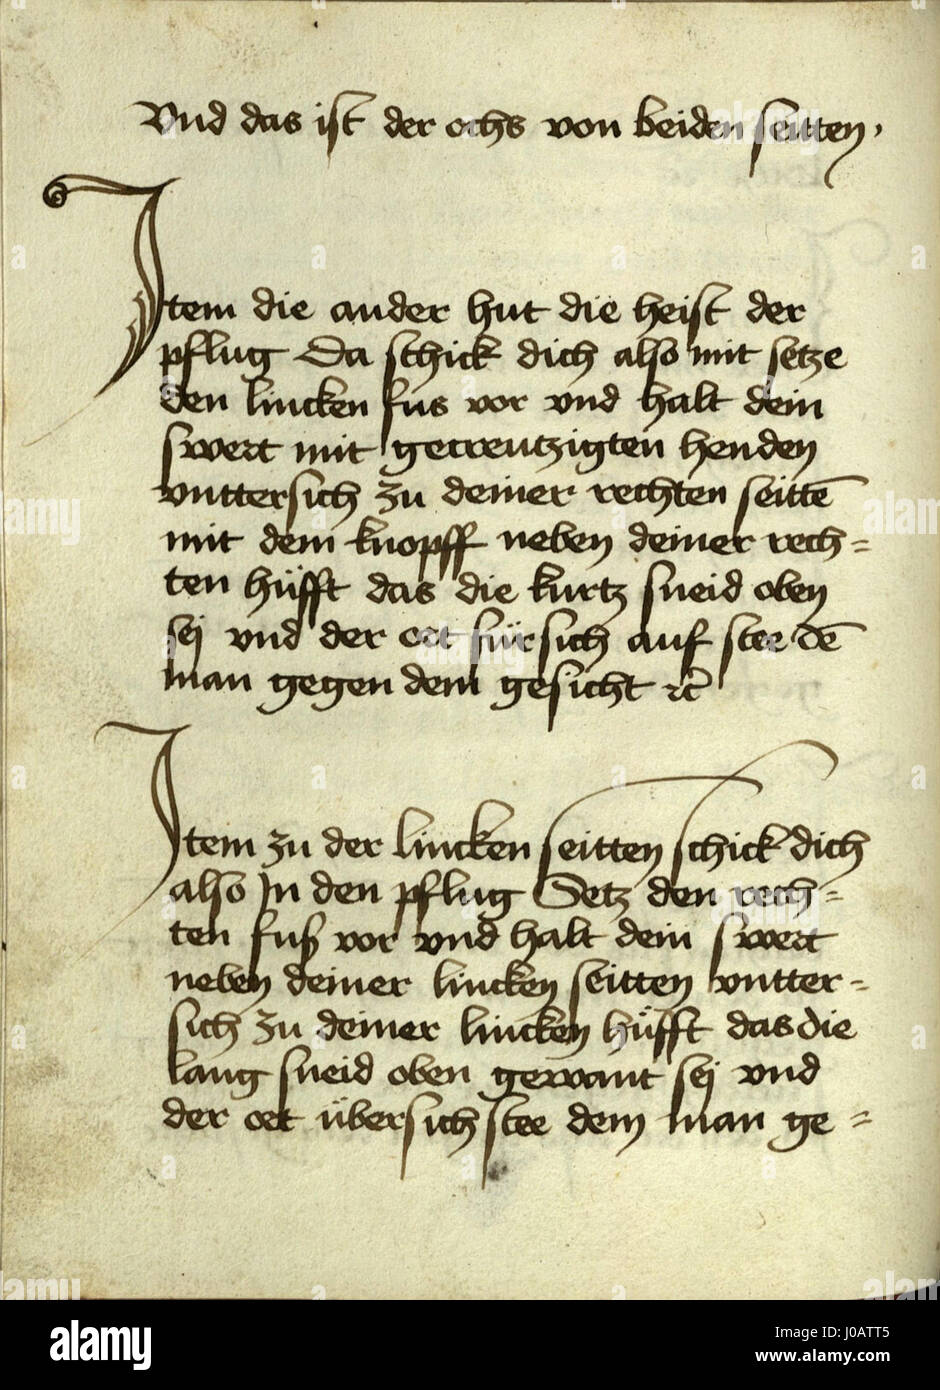 Vnd das ist der ochs von beiden seitten ·
Item die ander hut die heist der
pflug Da schick dich also mit setze
den lincken fus vor vnd halt dein
swert mit gecreutzigten henden
vnttersich zu deiner rechten seittē
mit dem knopff neben deiner rech=
ten hüfft das die kurtz sneid oben
sej vnd der ort fürsich auf stee dē
man gegen dem gesicht ⁊c̄
Item zu der lincken seitten schick dich
also In den pflug Setz den rech=
ten fuß vor vnd halt dein swert
neben deiner lincken seitten vntter=
sich zu deiner lincken hüfft das die
lang sneid oben gewant sej vnd
der ort übersich stee dem man ge=
alamy
Image ID: J0ATT5
www.alamy.com